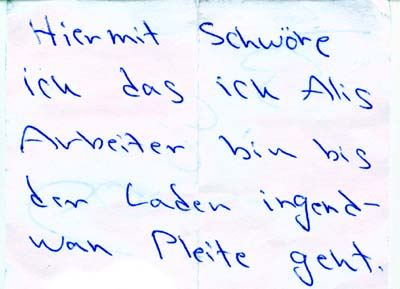 Hiermit Schwöre
ich das ich Alis
Arbeiter bin bis
der Laden irgend-
wan Pleite geht.